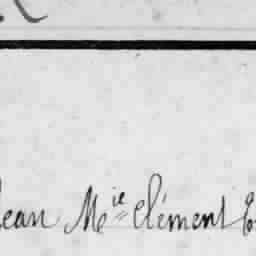 Jean M^ie Clément